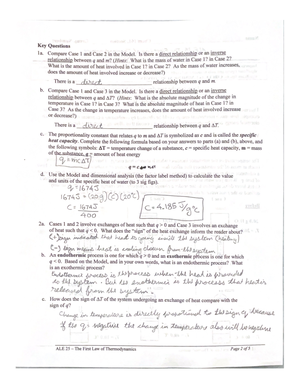 Key Questions
1a. Compare Case 1 and Case 2 in the Model. Is there a direct relationship or an inverse
relationship between q and m? (Hints: What is the mass of water in Case 1? Case 2?
What is the amount of heat involved in Case 1? Case 2? As the mass of water increases,
does the amount of heat involved increase or decrease?)
There is a direct relationship between q and m.
b. Compare Case 1 and Case 3 in the Model. Is there a direct relationship or an inverse
relationship between q and ΔT? (Hints: What is the absolute magnitude of the change in
temperature in Case 1? Case 3? What is the absolute magnitude of heat in Case 1?
Case 3? As the change in temperature increases, does the amount of heat involved
increase or decrease?)
There is a direct relationship between q and ΔT.
c. The proportionality constant that relates q to m and ΔT is symbolized as c and is called the specific
heat capacity. Complete the following formula based on your answers to parts (a) and (b), above, and
the following symbols: ΔT = temperature change of a substance, c = specific heat capacity, m = mass
of the substance, q = amount of heat energy
q = mcΔT
d. Use the Model and dimensional analysis (the factor label method) to calculate the value
and units of the specific heat of water (to 3 sig figs).
q = 1674J
1674J = (20g)(c)(20°C)
c = 1674J
400
C = 4.185 J/g°C
2a. Cases 1 and 2 involve exchanges of heat such that q > 0 and Case 3 involves an exchange
of heat such that q < 0. What does the "sign" of the heat exchange inform the reader about?
indicates that heat is going inside the system
sign means heat is coming from the system
b. An endothermic process is one for which q > 0 and an exothermic process is one for which
q < 0. Based on the Model, and in your own words, what is an endothermic process? What
is an exothermic process?
process is the process when the heat is provided
to the system. But the exothermic is the process that heat is
released from the system.
c. How does the sign of ΔT of the system undergoing an exchange of heat compare with the
sign of q?
Change in temperature is directly proportional to the sign of q because
if the q is negative the change in temperature also will be negative
ALE 23 – The First Law of Thermodynamics
Page 2 of 5